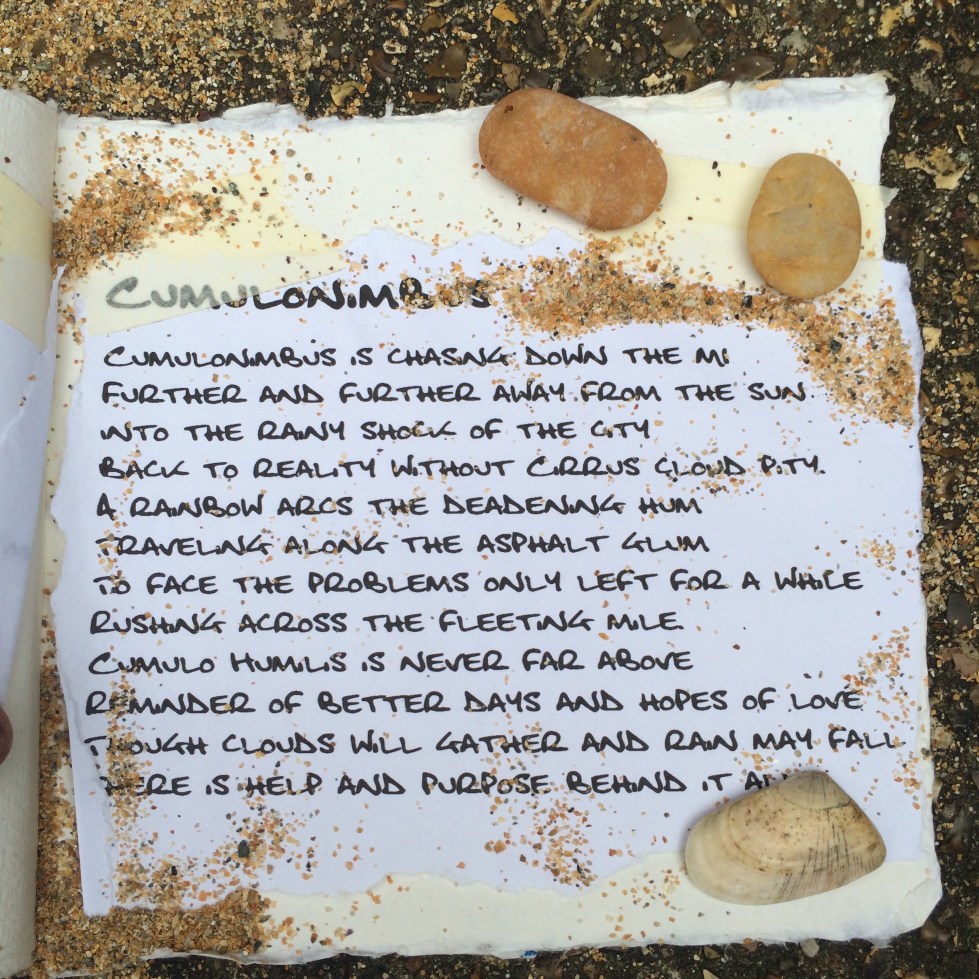 CUMULONIMBUS
CUMULONIMBUS IS CHASING DOWN THE M1
FURTHER AND FURTHER AWAY FROM THE SUN.
INTO THE RAINY SHOCK OF THE CITY
BACK TO REALITY WITHOUT CIRRUS CLOUD PITY.
A RAINBOW ARCS THE DEADENING HUM
TRAVELING ALONG THE ASPHALT GLUM
TO FACE THE PROBLEMS ONLY LEFT FOR A WHILE
RUSHING ACROSS THE FLEETING MILE.
CUMULO HUMILIS IS NEVER FAR ABOVE
REMINDER OF BETTER DAYS AND HOPES OF LOVE
THOUGH CLOUDS WILL GATHER AND RAIN MAY FALL
THERE IS HELP AND PURPOSE BEHIND IT ALL